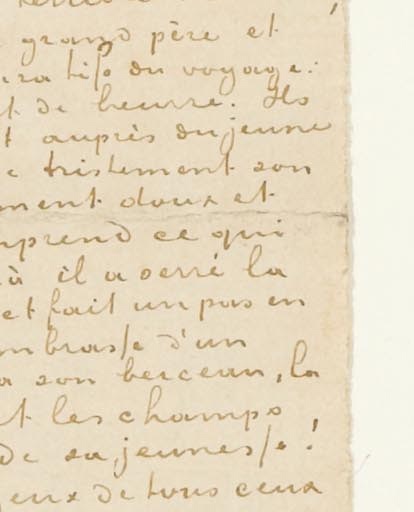 grand père et
du voyage.
t de beurre. Ils
t auprès du jeune
e tristement son
ment doux et
mprend ce qui
là il a serré la
et fait un pas en
mbrasse d'un
a son berceau, la
t les champs
de sa jeunesse!
yeux de tous ceux